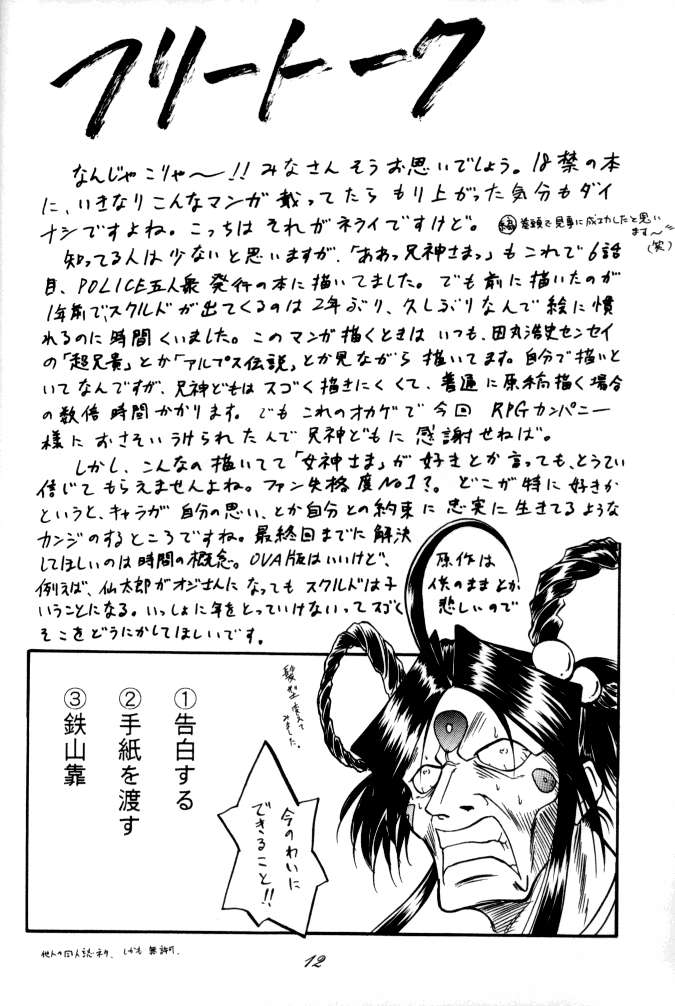 フリートーク
なんじゃこりゃ〜!! みなさんそうお思いでしょう。18禁の本
に、いきなりこんなマンガ載ってたらもり上がった気分もダイ
ナシですよね。こっちはそれがネライですけど。
編 巻頭で見事に成功したと思い
ます〜
(笑)
知ってる人は少ないと思いますが、「ああっ兄神さまっ」もこれで6話
目、POLICE五人衆発行の本に描いてました。でも前に描いたのが
1年前で、スクルドが出てくるのは2年ぶり、久しぶりなんで絵に慣
れるのに時間くいました。このマンガ描くときはいつも、田丸浩史センセイ
の「超兄貴」とか「アルプス伝説」とか見ながら描いてます。自分で描いと
いてなんですが、兄神どもはスゴく描きにくくて、普通に原稿描く場合
の数倍時間かかります。でもこれのオカゲで今回 RPGカンパニー
様におさそいうけられたんで兄神どもに感謝せねば。
しかし、こんなの描いてて「女神さま」が好きとか言っても、とうてい
信じてもらえませんよね。ファン失格度No1?。どこが特に好きか
というと、キャラが自分の思い、とか自分との約束に忠実に生きてるような
カンジのするところですね。最終回までに解決
してほしいのは時間の概念。OVA版はいいけど、原作は
例えば、仙太郎がオジさんになってもスクルドは子供のままとか
いうことになる。いっしょに年をとっていけないってスゴく悲しいので
そこをどうにかしてほしいです。
髪型変えて
みました。
①告白する
②手紙を渡す
③鉄山靠
今のわいに
できること!!
他人の同人誌ネタ。しかも無許可。
12